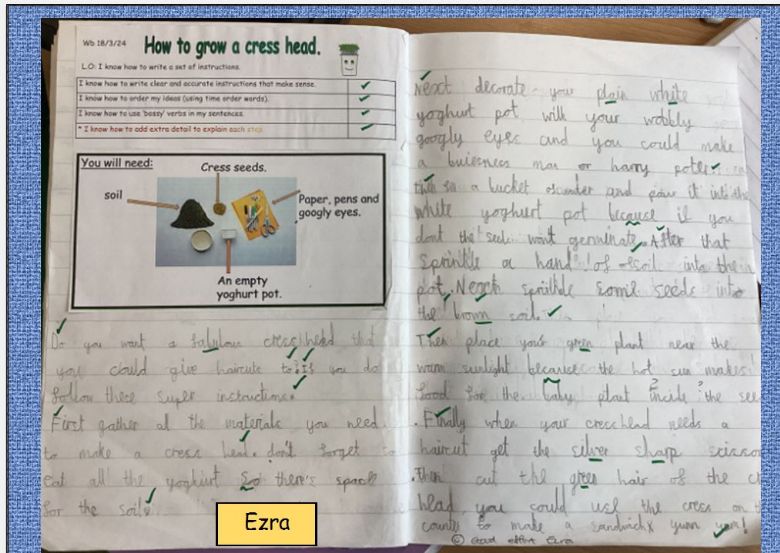 Wb 18/3/24 How to grow a cress head.
L.O: I know how to write a set of instructions.
I know how to write clear and accurate instructions that make sense.
I know how to order my ideas (using time order words).
I know how to use 'bossy' verbs in my sentences.
* I know how to add extra detail to explain each step.
You will need:
Cress seeds.
soil
Paper, pens and
googly eyes.
An empty
yoghurt pot.
Do you want a fabulous cress head that
you could give haircuts to? If you do
follow these super instructions.
First gather all the materials you need
to make a cress head. don't forget to
eat all the yoghurt So there's space
for the soil.
Ezra
Next decorate your plain white
yoghurt pot with your wobbly
googly eyes and you could make
a buiesness man or harry potter
a bucket and into the
white yoghurt pot because if you
dont the seeds wont germinate. After that
Sprinkle a hand of soil into the
pot. Next sprinkle some seeds into
the brown soil.
Then place your green plant near the
warm sunlight because the hot sun makes
food for the baby plant incide the see
. Finally when your cress head needs a
haircut get the silver sharp scissor
. Then cut the green hair of the c
head, you could use the cress on t
to make a sandwich yum yum!
Good effort Ezra